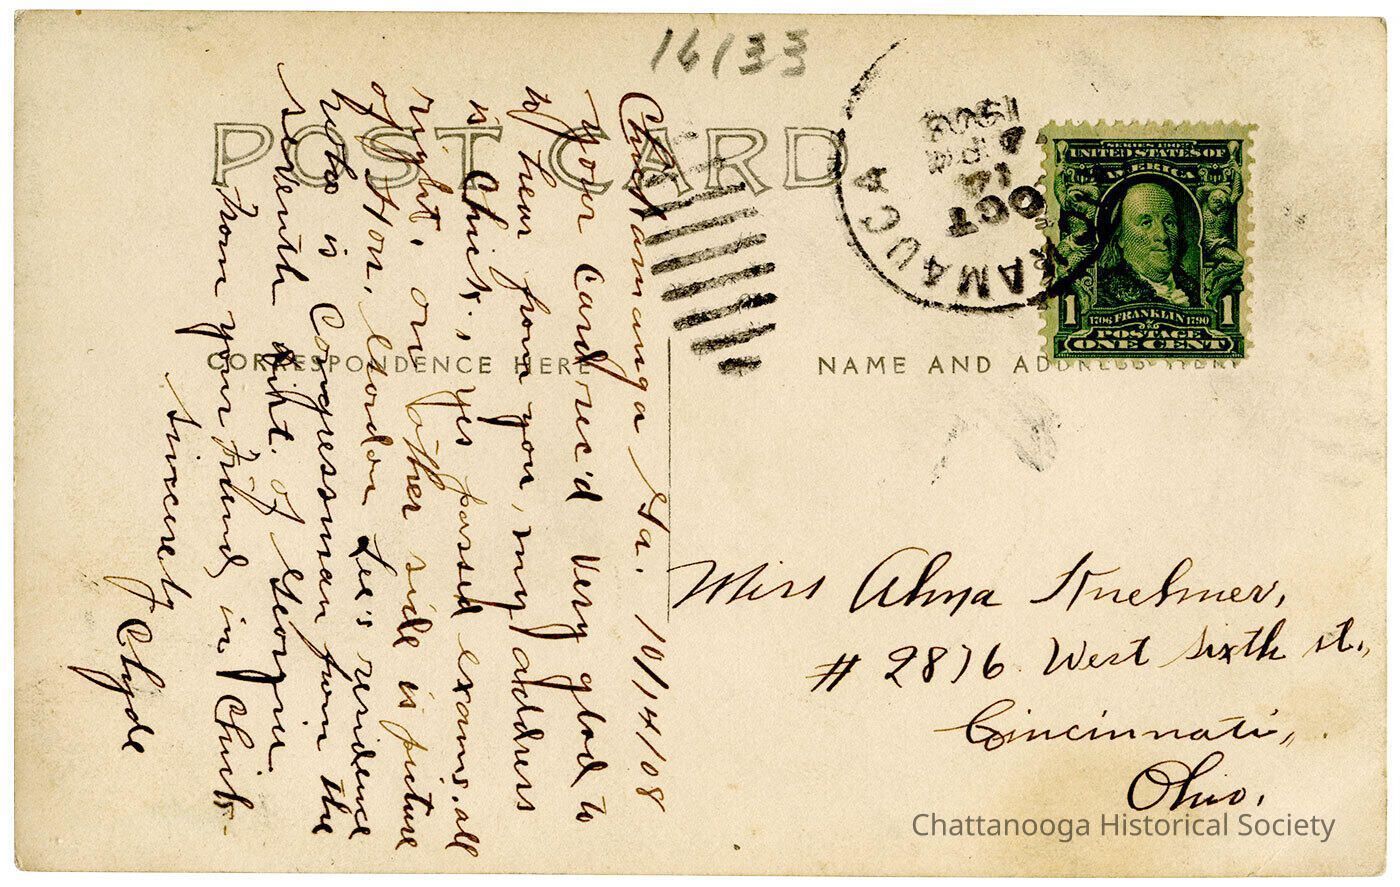 16133
POST CARD
CORRESPONDENCE HERE
NAME AND ADDRESS HERE
Chickamauga Ga. 10/14/08
Your Card rec'd Very glad to
hear from you, my address
is Chick., yes passed exams. all
right. on other side is picture
of Hon. Gordon Lee's residence
who is Congressman from the
seventh dist. of Georgia
From your Friend, in Chick-
Sincerely
Clyde
OCT
14
4 PM
1908
SERIES 1902
UNITED STATES OF
AMERICA
1 1
1706 FRANKLIN 1790
POSTAGE
ONE CENT
Miss Alma Kuehner,
# 2876 West Sixth st.,
Cincinnati,
Ohio.
Chattanooga Historical Society